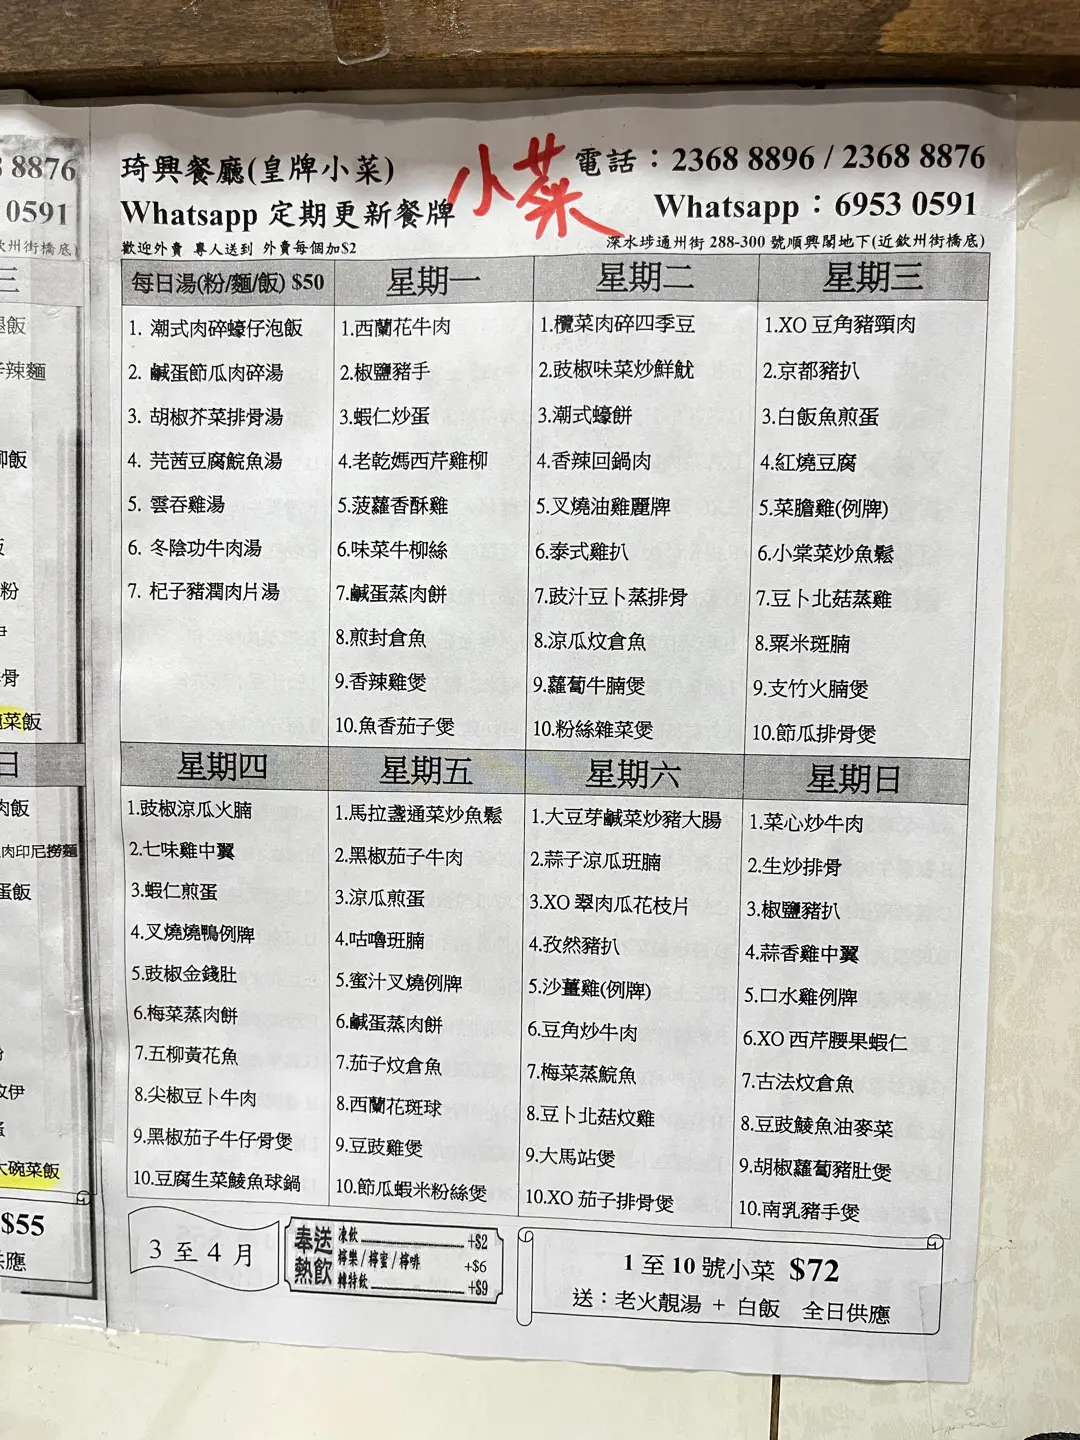 琦興餐廳(皇牌小菜)
小菜
電話：2368 8896 / 2368 8876
Whatsapp 定期更新餐牌
Whatsapp：6953 0591
歡迎外賣 專人送到 外賣每個加$2
深水埗通州街 288-300 號順興閣地下(近欽州街橋底)
每日湯(粉/麵/飯) $50
1. 潮式肉碎蠔仔泡飯
2. 鹹蛋節瓜肉碎湯
3. 胡椒芥菜排骨湯
4. 芫茜豆腐鯇魚湯
5. 雲吞雞湯
6. 冬陰功牛肉湯
7. 杞子豬潤肉片湯
星期一
1.西蘭花牛肉
2.椒鹽豬手
3.蝦仁炒蛋
4.老乾媽西芹雞柳
5.菠蘿香酥雞
6.味菜牛柳絲
7.鹹蛋蒸肉餅
8.煎封倉魚
9.香辣雞煲
10.魚香茄子煲
星期二
1.欖菜肉碎四季豆
2.豉椒味菜炒鮮魷
3.潮式蠔餅
4.香辣回鍋肉
5.叉燒油雞麗牌
6.泰式雞扒
7.豉汁豆卜蒸排骨
8.涼瓜炆倉魚
9.蘿蔔牛腩煲
10.粉絲雜菜煲
星期三
1.XO 豆角豬頸肉
2.京都豬扒
3.白飯魚煎蛋
4.紅燒豆腐
5.菜膽雞(例牌)
6.小棠菜炒魚鬆
7.豆卜北菇蒸雞
8.粟米斑腩
9.支竹火腩煲
10.節瓜排骨煲
星期四
1.豉椒涼瓜火腩
2.七味雞中翼
3.蝦仁煎蛋
4.叉燒燒鴨例牌
5.豉椒金錢肚
6.梅菜蒸肉餅
7.五柳黃花魚
8.尖椒豆卜牛肉
9.黑椒茄子牛仔骨煲
10.豆腐生菜鯪魚球鍋
星期五
1.馬拉盞通菜炒魚鬆
2.黑椒茄子牛肉
3.涼瓜煎蛋
4.咕嚕班腩
5.蜜汁叉燒例牌
6.鹹蛋蒸肉餅
7.茄子炆倉魚
8.西蘭花斑球
9.豆豉雞煲
10.節瓜蝦米粉絲煲
星期六
1.大豆芽鹹菜炒豬大腸
2.蒜子涼瓜班腩
3.XO 翠肉瓜花枝片
4.孜然豬扒
5.沙薑雞(例牌)
6.豆角炒牛肉
7.梅菜蒸鯇魚
8.豆卜北菇炆雞
9.大馬站煲
10.XO 茄子排骨煲
星期日
1.菜心炒牛肉
2.生炒排骨
3.椒鹽豬扒
4.蒜香雞中翼
5.口水雞例牌
6.XO 西芹腰果蝦仁
7.古法炆倉魚
8.豆豉鯪魚油麥菜
9.胡椒蘿蔔豬肚煲
10.南乳豬手煲
3 至 4 月
奉送熱飲
凍飲 +$2
檸樂/檸蜜/檸啡 +$6
轉特飲 +$9
1 至 10 號小菜 $72
送：老火靚湯 + 白飯 全日供應
8876
0591
州街橋底)
三
飯
辣麵
飯
粉
骨
菜飯
日
肉飯
肉印尼撈麵
蛋飯
大碗菜飯
$55
供應